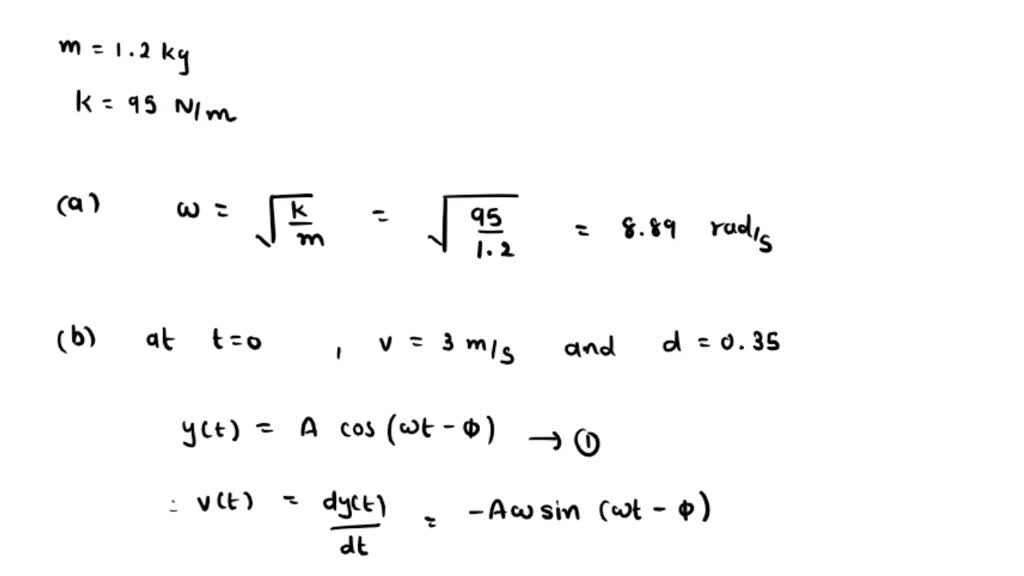 m = 1.2 kg
k = 95 N/m
(a) ω = √(k/m) = √(95/1.2) = 8.89 rad/s
(b) at t=0 , v = 3 m/s and d = 0.35
y(t) = A cos (ωt - φ) → ①
∴ v(t) = dy(t)/dt = -Aω sin (ωt - φ)